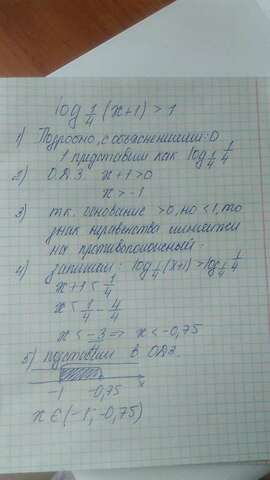 log 1/4 (x+1) > 1
1) Подробно, с объяснениями:D.
1 представим как log 1/4 1/4
2) ОДЗ. x+1>0
x > -1
3) т.к. основание >0, но <1, то
знак неравенства меняется
на противоположный:
4) запишем: log 1/4 (x+1) > log 1/4 1/4
x+1 < 1/4
x < 1/4 - 4/4
x < -3 => x < -0,75
5) подставим в ОДЗ.
-1 -0,75 x
x ∈ (-1; -0,75)